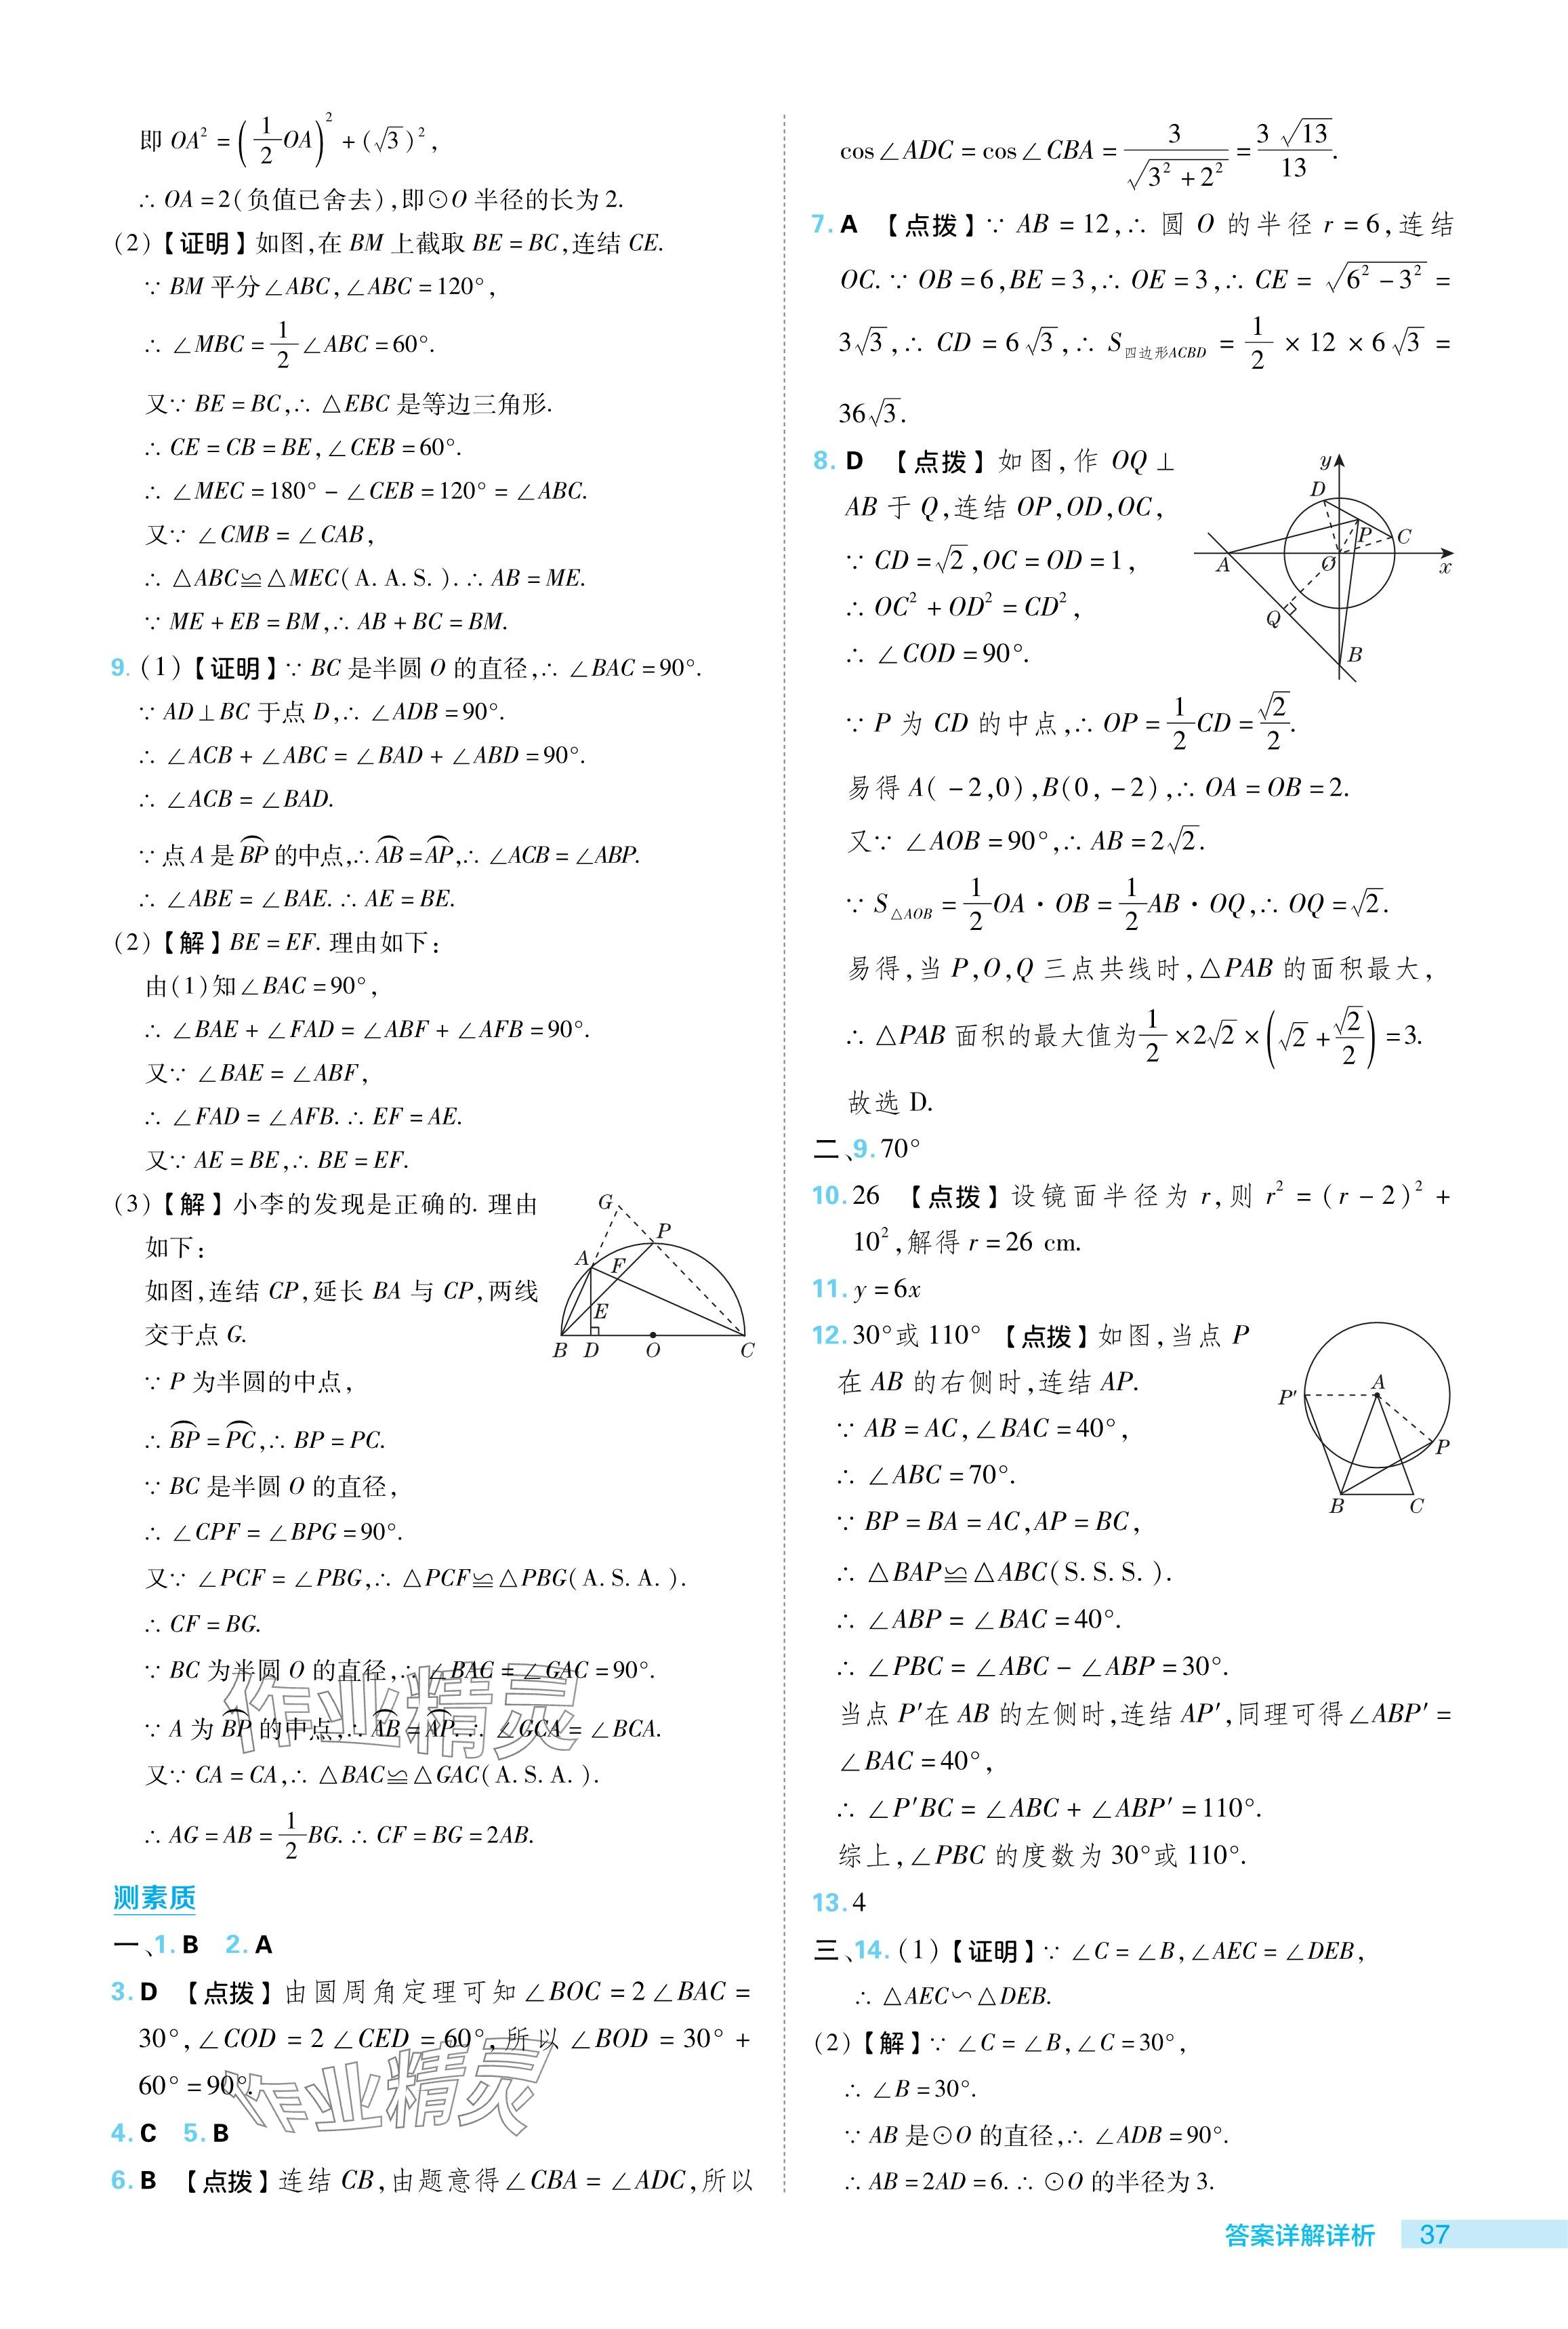 即 OA² = (1/2 OA)² + (√3)²,
∴ OA = 2(负值已舍去),即⊙O 半径的长为 2.
(2)【证明】如图,在 BM 上截取 BE = BC,连结 CE.
∵ BM 平分∠ABC,∠ABC = 120°,
∴ ∠MBC = 1/2 ∠ABC = 60°.
又∵ BE = BC,∴ △EBC 是等边三角形.
∴ CE = CB = BE,∠CEB = 60°.
∴ ∠MEC = 180° - ∠CEB = 120° = ∠ABC.
又∵ ∠CMB = ∠CAB,
∴ △ABC≌△MEC(A. A. S. ). ∴ AB = ME.
∵ ME + EB = BM,∴ AB + BC = BM.
9. (1)【证明】∵ BC 是半圆 O 的直径,∴ ∠BAC = 90°.
∵ AD⊥BC 于点 D,∴ ∠ADB = 90°.
∴ ∠ACB + ∠ABC = ∠BAD + ∠ABD = 90°.
∴ ∠ACB = ∠BAD.
∵ 点 A 是 ⌒BP 的中点,∴ ⌒AB = ⌒AP,∴ ∠ACB = ∠ABP.
∴ ∠ABE = ∠BAE. ∴ AE = BE.
(2)【解】BE = EF. 理由如下:
由(1)知∠BAC = 90°,
∴ ∠BAE + ∠FAD = ∠ABF + ∠AFB = 90°.
又∵ ∠BAE = ∠ABF,
∴ ∠FAD = ∠AFB. ∴ EF = AE.
又∵ AE = BE,∴ BE = EF.
(3)【解】小李的发现是正确的. 理由
如下:
如图,连结 CP,延长 BA 与 CP,两线
交于点 G.
G
P
A
F
E
B D O C
∵ P 为半圆的中点,
∴ ⌒BP = ⌒PC,∴ BP = PC.
∵ BC 是半圆 O 的直径,
∴ ∠CPF = ∠BPG = 90°.
又∵ ∠PCF = ∠PBG,∴ △PCF≌△PBG(A. S. A. ).
∴ CF = BG.
∵ BC 为半圆 O 的直径,∴ ∠BAC = ∠GAC = 90°.
∵ A 为 ⌒BP 的中点,∴ ⌒AB = ⌒AP. ∴ ∠GCA = ∠BCA.
又∵ CA = CA,∴ △BAC≌△GAC(A. S. A. ).
∴ AG = AB = 1/2 BG. ∴ CF = BG = 2AB.
作业精灵
测素质
一、1. B 2. A
3. D 【点拨】由圆周角定理可知∠BOC = 2∠BAC =
30°,∠COD = 2∠CED = 60°,所以∠BOD = 30° +
60° = 90°.
作业精灵
4. C 5. B
6. B 【点拨】连结 CB,由题意得∠CBA = ∠ADC,所以
cos∠ADC = cos∠CBA = 3/√(3² + 2²) = 3√13/13.
7. A 【点拨】∵ AB = 12,∴ 圆 O 的半径 r = 6,连结
OC. ∵ OB = 6,BE = 3,∴ OE = 3,∴ CE = √(6² - 3²) =
3√3,∴ CD = 6√3,∴ S四边形ACBD = 1/2 × 12 × 6√3 =
36√3.
8. D 【点拨】如图,作 OQ⊥
AB 于 Q,连结 OP,OD,OC,
∵ CD = √2,OC = OD = 1,
∴ OC² + OD² = CD²,
∴ ∠COD = 90°.
y
D
P C
A O x
Q
B
∵ P 为 CD 的中点,∴ OP = 1/2 CD = √2/2.
易得 A( - 2,0),B(0, - 2),∴ OA = OB = 2.
又∵ ∠AOB = 90°,∴ AB = 2√2.
∵ S△AOB = 1/2 OA · OB = 1/2 AB · OQ,∴ OQ = √2.
易得,当 P,O,Q 三点共线时,△PAB 的面积最大,
∴ △PAB 面积的最大值为 1/2 × 2√2 × (√2 + √2/2) = 3.
故选 D.
二、9. 70°
10. 26 【点拨】设镜面半径为 r,则 r² = (r - 2)² +
10²,解得 r = 26 cm.
11. y = 6x
12. 30°或 110° 【点拨】如图,当点 P
在 AB 的右侧时,连结 AP.
∵ AB = AC,∠BAC = 40°,
∴ ∠ABC = 70°.
∵ BP = BA = AC,AP = BC,
P′ A
P
B C
∴ △BAP≌△ABC(S. S. S. ).
∴ ∠ABP = ∠BAC = 40°.
∴ ∠PBC = ∠ABC - ∠ABP = 30°.
当点 P′在 AB 的左侧时,连结 AP′,同理可得∠ABP′ =
∠BAC = 40°,
∴ ∠P′BC = ∠ABC + ∠ABP′ = 110°.
综上,∠PBC 的度数为 30°或 110°.
13. 4
三、14. (1)【证明】∵ ∠C = ∠B,∠AEC = ∠DEB,
∴ △AEC∽△DEB.
(2)【解】∵ ∠C = ∠B,∠C = 30°,
∴ ∠B = 30°.
∵ AB 是⊙O 的直径,∴ ∠ADB = 90°.
∴ AB = 2AD = 6. ∴ ⊙O 的半径为 3.
答案详解详析 37